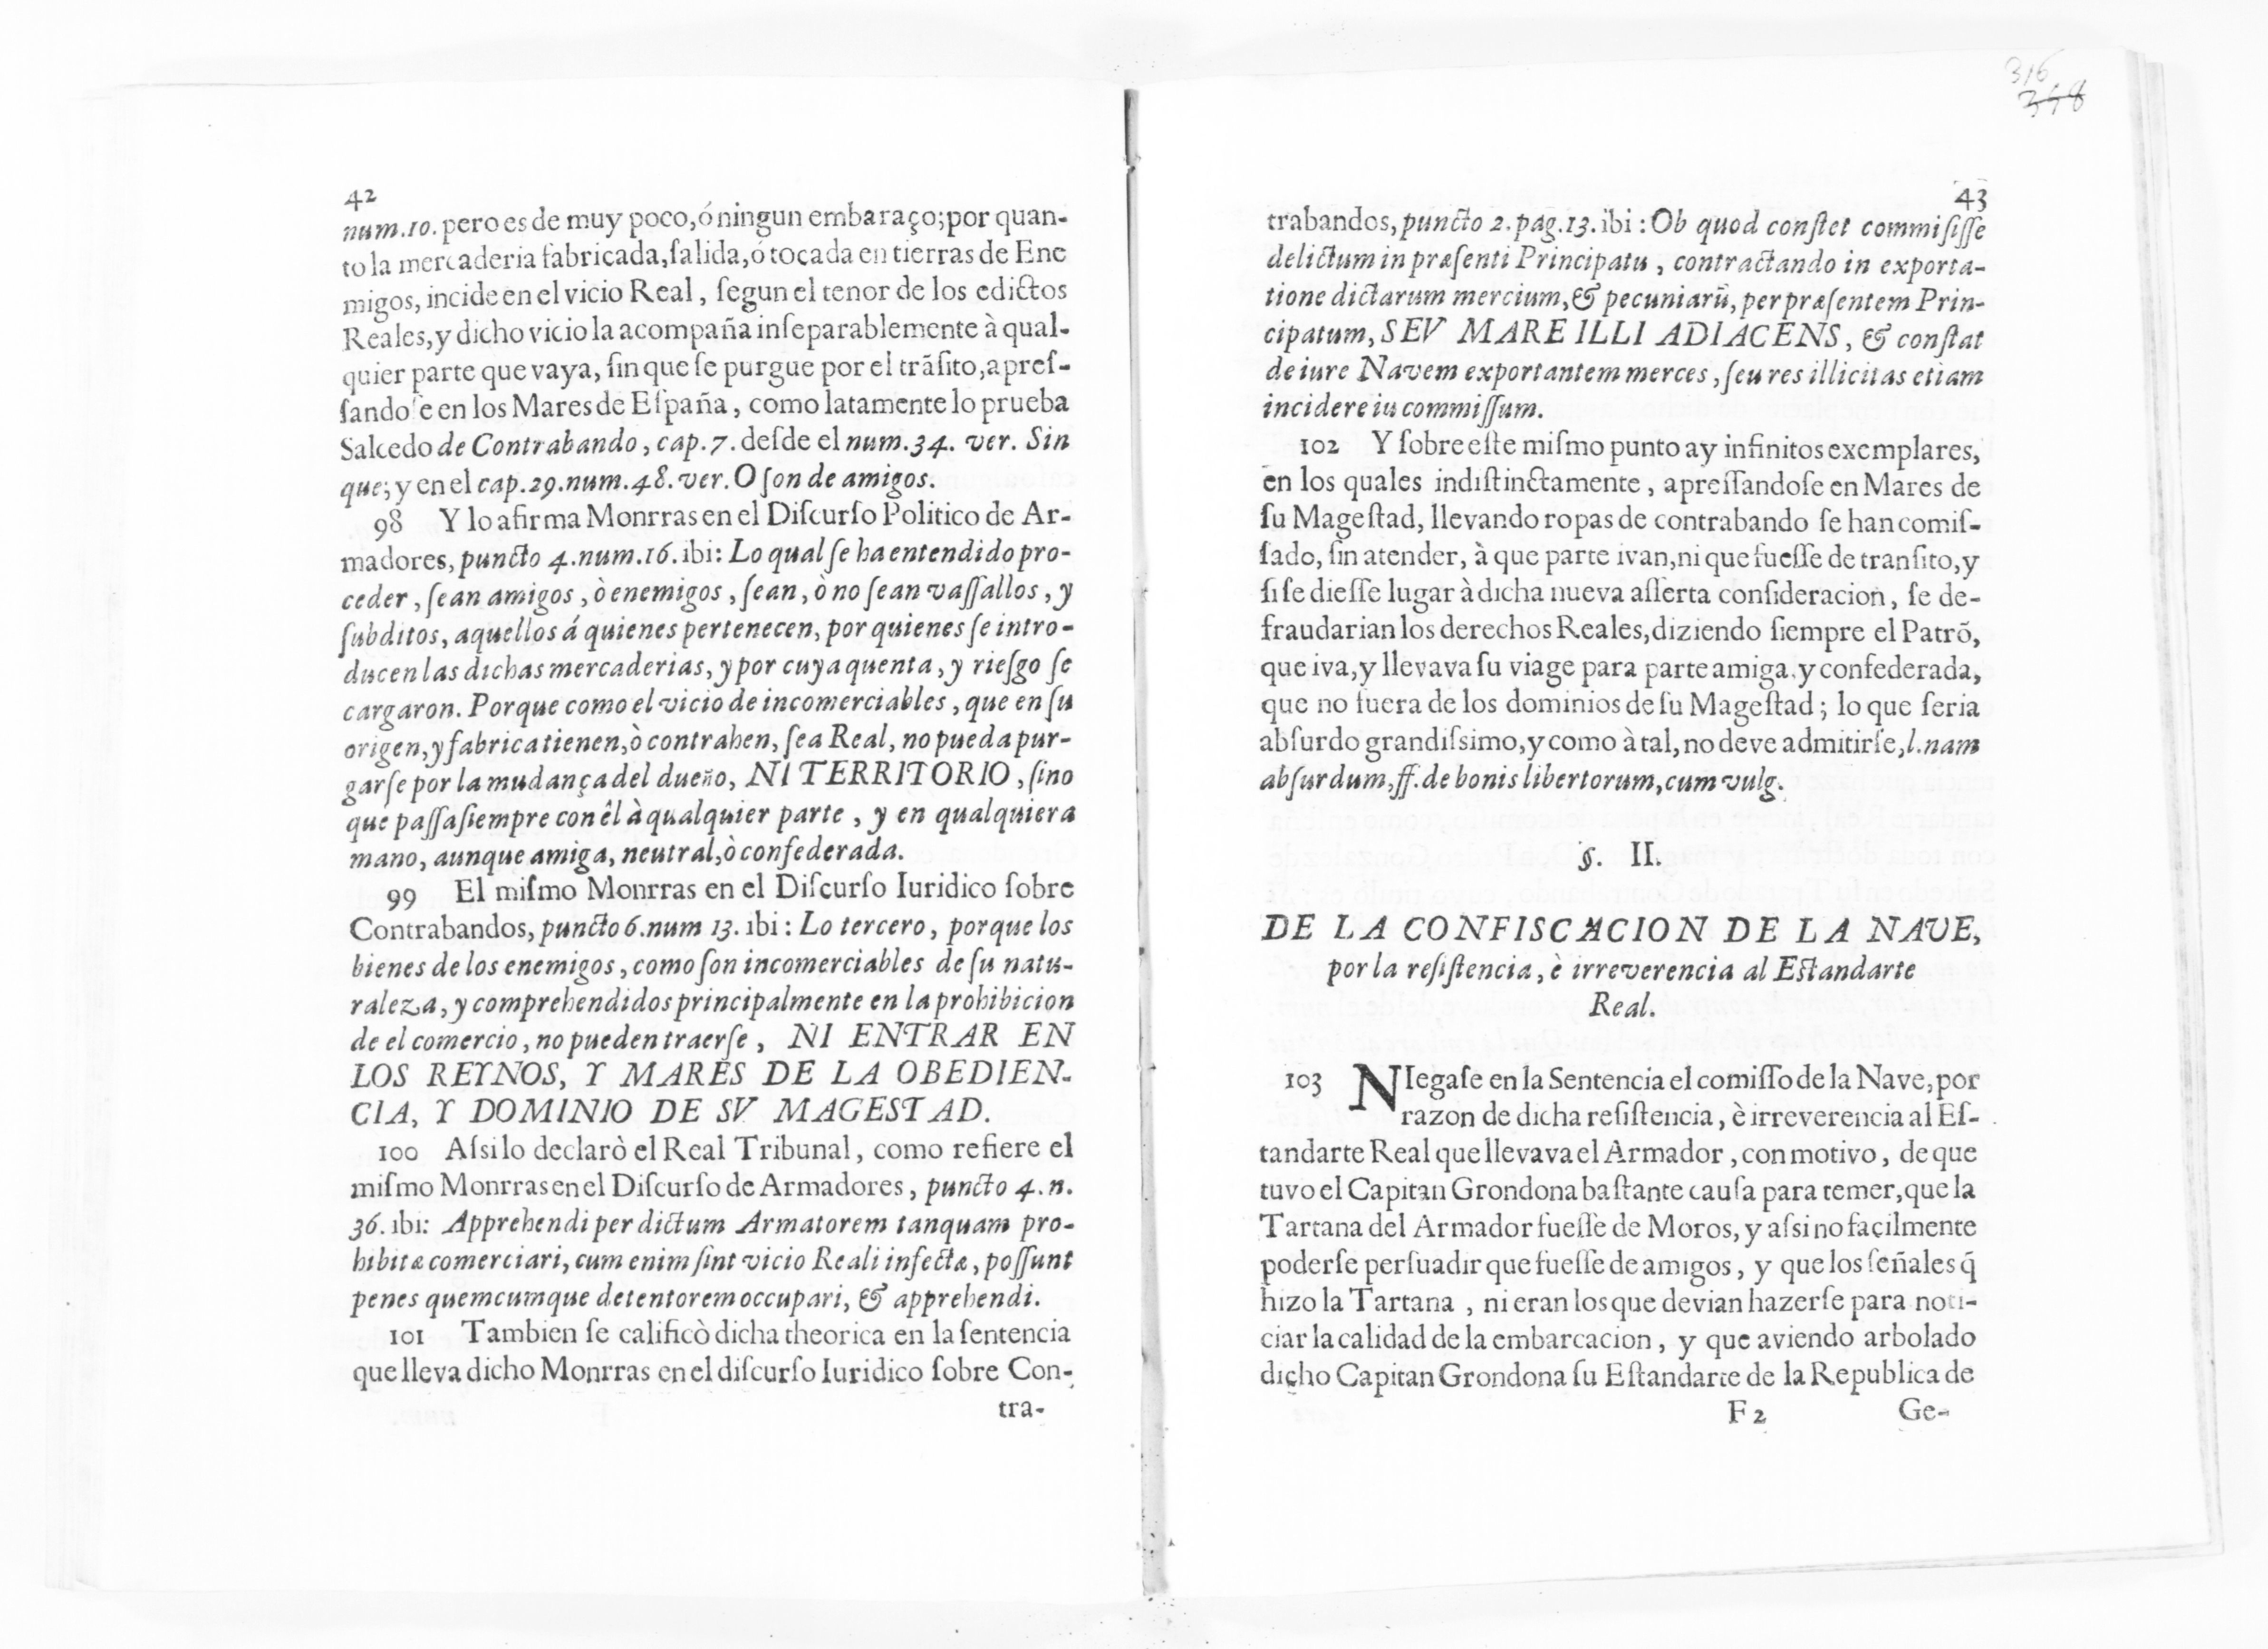 42
num.10. pero es de muy poco, ó ningun embaraço; por quan-
to la mercaderia fabricada, salida, ó tocada en tierras de Ene
migos, incide en el vicio Real, segun el tenor de los edictos
Reales, y dicho vicio la acompaña inseparablemente à qual-
quier parte que vaya, sin que se purgue por el trãsito, apres-
sandose en los Mares de España, como latamente lo prueba
Salcedo de Contrabando, cap.7. desde el num.34. ver. Sin
que; y en el cap.29.num.48.ver. O son de amigos.
98 Y lo afirma Monrras en el Discurso Politico de Ar-
madores, puncto 4.num.16. ibi: Lo qual se ha entendido pro-
ceder, sean amigos, ò enemigos, sean, ò no sean vassallos, y
subditos, aquellos á quienes pertenecen, por quienes se intro-
ducen las dichas mercaderias, y por cuya quenta, y riesgo se
cargaron. Porque como el vicio de incomerciables, que en su
origen, y fabrica tienen, ò contrahen, sea Real, no pueda pur-
garse por la mudança del dueño, NI TERRITORIO, sino
que passa siempre con êl à qualquier parte, y en qualquiera
mano, aunque amiga, neutral, ò confederada.
99 El mismo Monrras en el Discurso Iuridico sobre
Contrabandos, puncto 6.num 13. ibi: Lo tercero, porque los
bienes de los enemigos, como son incomerciables de su natu-
raleza, y comprehendidos principalmente en la prohibicion
de el comercio, no pueden traerse, NI ENTRAR EN
LOS REYNOS, Y MARES DE LA OBEDIEN-
CIA, Y DOMINIO DE SV MAGESTAD.
100 Assi lo declarò el Real Tribunal, como refiere el
mismo Monrras en el Discurso de Armadores, puncto 4. n.
36. ibi: Apprehendi per dictum Armatorem tanquam pro-
hibitæ comerciari, cum enim sint vicio Reali infectæ, possunt
penes quemcumque detentorem occupari, & apprehendi.
101 Tambien se calificò dicha theorica en la sentencia
que lleva dicho Monrras en el discurso Iuridico sobre Con-
tra-
316
348
43
trabandos, puncto 2. pag.13. ibi: Ob quod constet commisisse
delictum in præsenti Principatu, contractando in exporta-
tione dictarum mercium, & pecuniarũ, per præsentem Prin-
cipatum, SEV MARE ILLI ADIACENS, & constat
de iure Navem exportantem merces, seu res illicitas etiam
incidere iu commissum.
102 Y sobre este mismo punto ay infinitos exemplares,
en los quales indistinctamente, apressandose en Mares de
su Magestad, llevando ropas de contrabando se han comis-
sado, sin atender, à que parte ivan, ni que fuesse de transito, y
si se diesse lugar à dicha nueva asserta consideracion, se de-
fraudarian los derechos Reales, diziendo siempre el Patrõ,
que iva, y llevava su viage para parte amiga, y confederada,
que no fuera de los dominios de su Magestad; lo que seria
absurdo grandissimo, y como à tal, no deve admitirse, l. nam
absurdum, ff. de bonis libertorum, cum vulg.
§. II.
DE LA CONFISCACION DE LA NAVE,
por la resistencia, è irreverencia al Estandarte
Real.
103 NIegase en la Sentencia el comisso de la Nave, por
razon de dicha resistencia, è irreverencia al Es-
tandarte Real que llevava el Armador, con motivo, de que
tuvo el Capitan Grondona bastante causa para temer, que la
Tartana del Armador fuesse de Moros, y assi no façilmente
poderse persuadir que fuesse de amigos, y que los señales q̃
hizo la Tartana, ni eran los que devian hazerse para noti-
ciar la calidad de la embarcacion, y que aviendo arbolado
dicho Capitan Grondona su Estandarte de la Republica de
F 2 Ge-